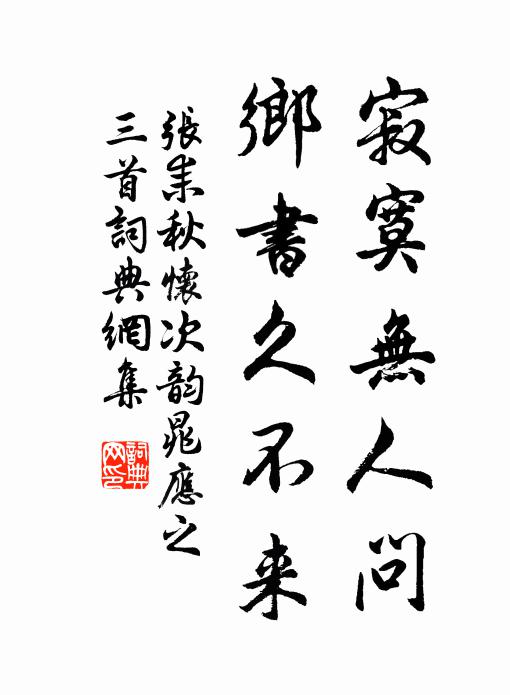 寂寞無人問
鄉書久不来
張耒秋懷次韵晁應之
三首詞典網集
詞典网印